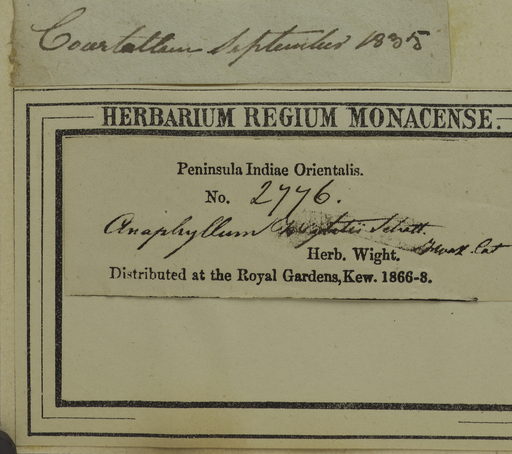 Courtallum September 1835
HERBARIUM REGIUM MONACENSE.
Peninsula Indiae Orientalis.
No. 2776.
Anaphyllum Wightii Schott.
Herb. Wight.
Distributed at the Royal Gardens, Kew. 1866-8.